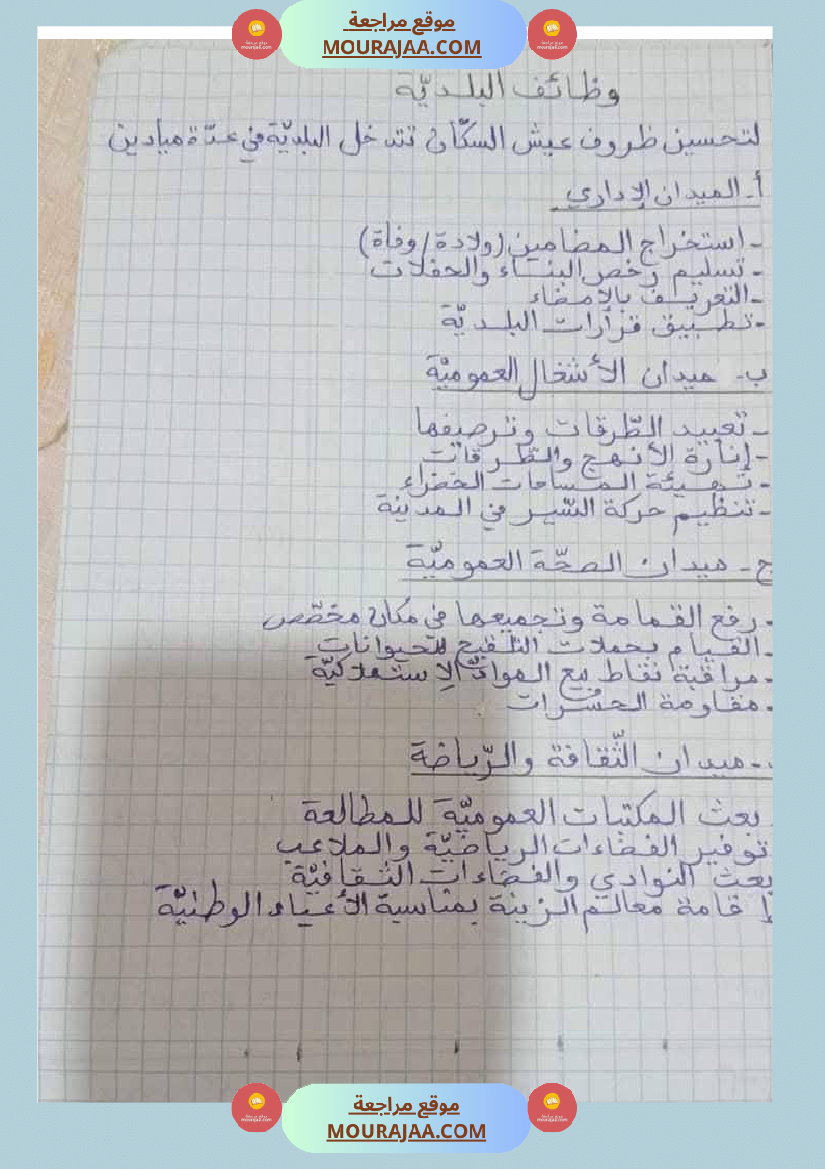 موقع مراجعة
MOURAJAA.COM
وظائف البلديّة
لتحسين ظروف عيش السكّان تتدخل البلديّة في عدّة ميادين
أ- الميدان الإداري
- استخراج المضامين (ولادة / وفاة)
- تسليم رخص البناء والحفلات
- التعريف بالإمضاء
- تطبيق قرارات البلديّة
ب- ميدان الأشغال العموميّة
- تعبيد الطّرقات وترصيفها
- إنارة الأنهج والطرقات
- تهيئة المساحات الخضراء
- تنظيم حركة السّير في المدينة
ج- ميدان الصحّة العموميّة
- رفع القمامة وتجميعها في مكان مخصّص
- القيام بحملات التلقيح للحيوانات
- مراقبة نقاط بيع الموادّ الإستهلاكيّة
- مقاومة الحشرات
- ميدان الثّقافة والرّياضة
بعث المكتبات العموميّة للمطالعة
توفير الفضاءات الرياضيّة والملاعب
بعث النوادي والفضاءات الثقافيّة
إقامة معالم الزينة بمناسبة الأعياد الوطنيّة
موقع مراجعة
MOURAJAA.COM